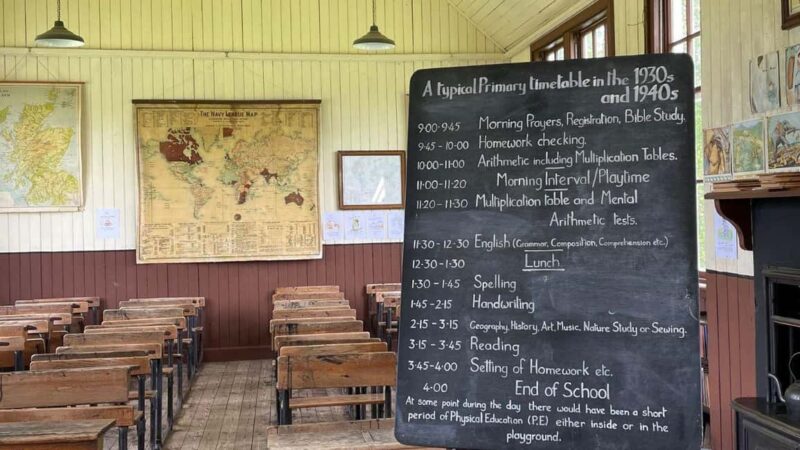 THE NAVY LEAGUE MAP
A typical Primary timetable in the 1930s
and 1940s
9·00-9·45 Morning Prayers, Registration, Bible Study.
9·45 - 10·00 Homework checking.
10·00-11·00 Arithmetic including Multiplication Tables.
11·00 - 11·20 Morning Interval/Playtime
11·20 - 11·30 Multiplication table and Mental
Arithmetic tests.
11·30 - 12·30 English (Grammar, Composition, Comprehension etc.)
12·30 - 1·30 Lunch
1·30 - 1·45 Spelling
1·45 - 2·15 Handwriting
2·15 - 3·15 Geography, History, Art, Music, Nature Study or Sewing.
3·15 - 3·45 Reading
3·45 - 4·00 Setting of Homework etc.
4·00 End of School
At some point during the day there would have been a short
period of Physical Education (P.E) either inside or in the
playground.